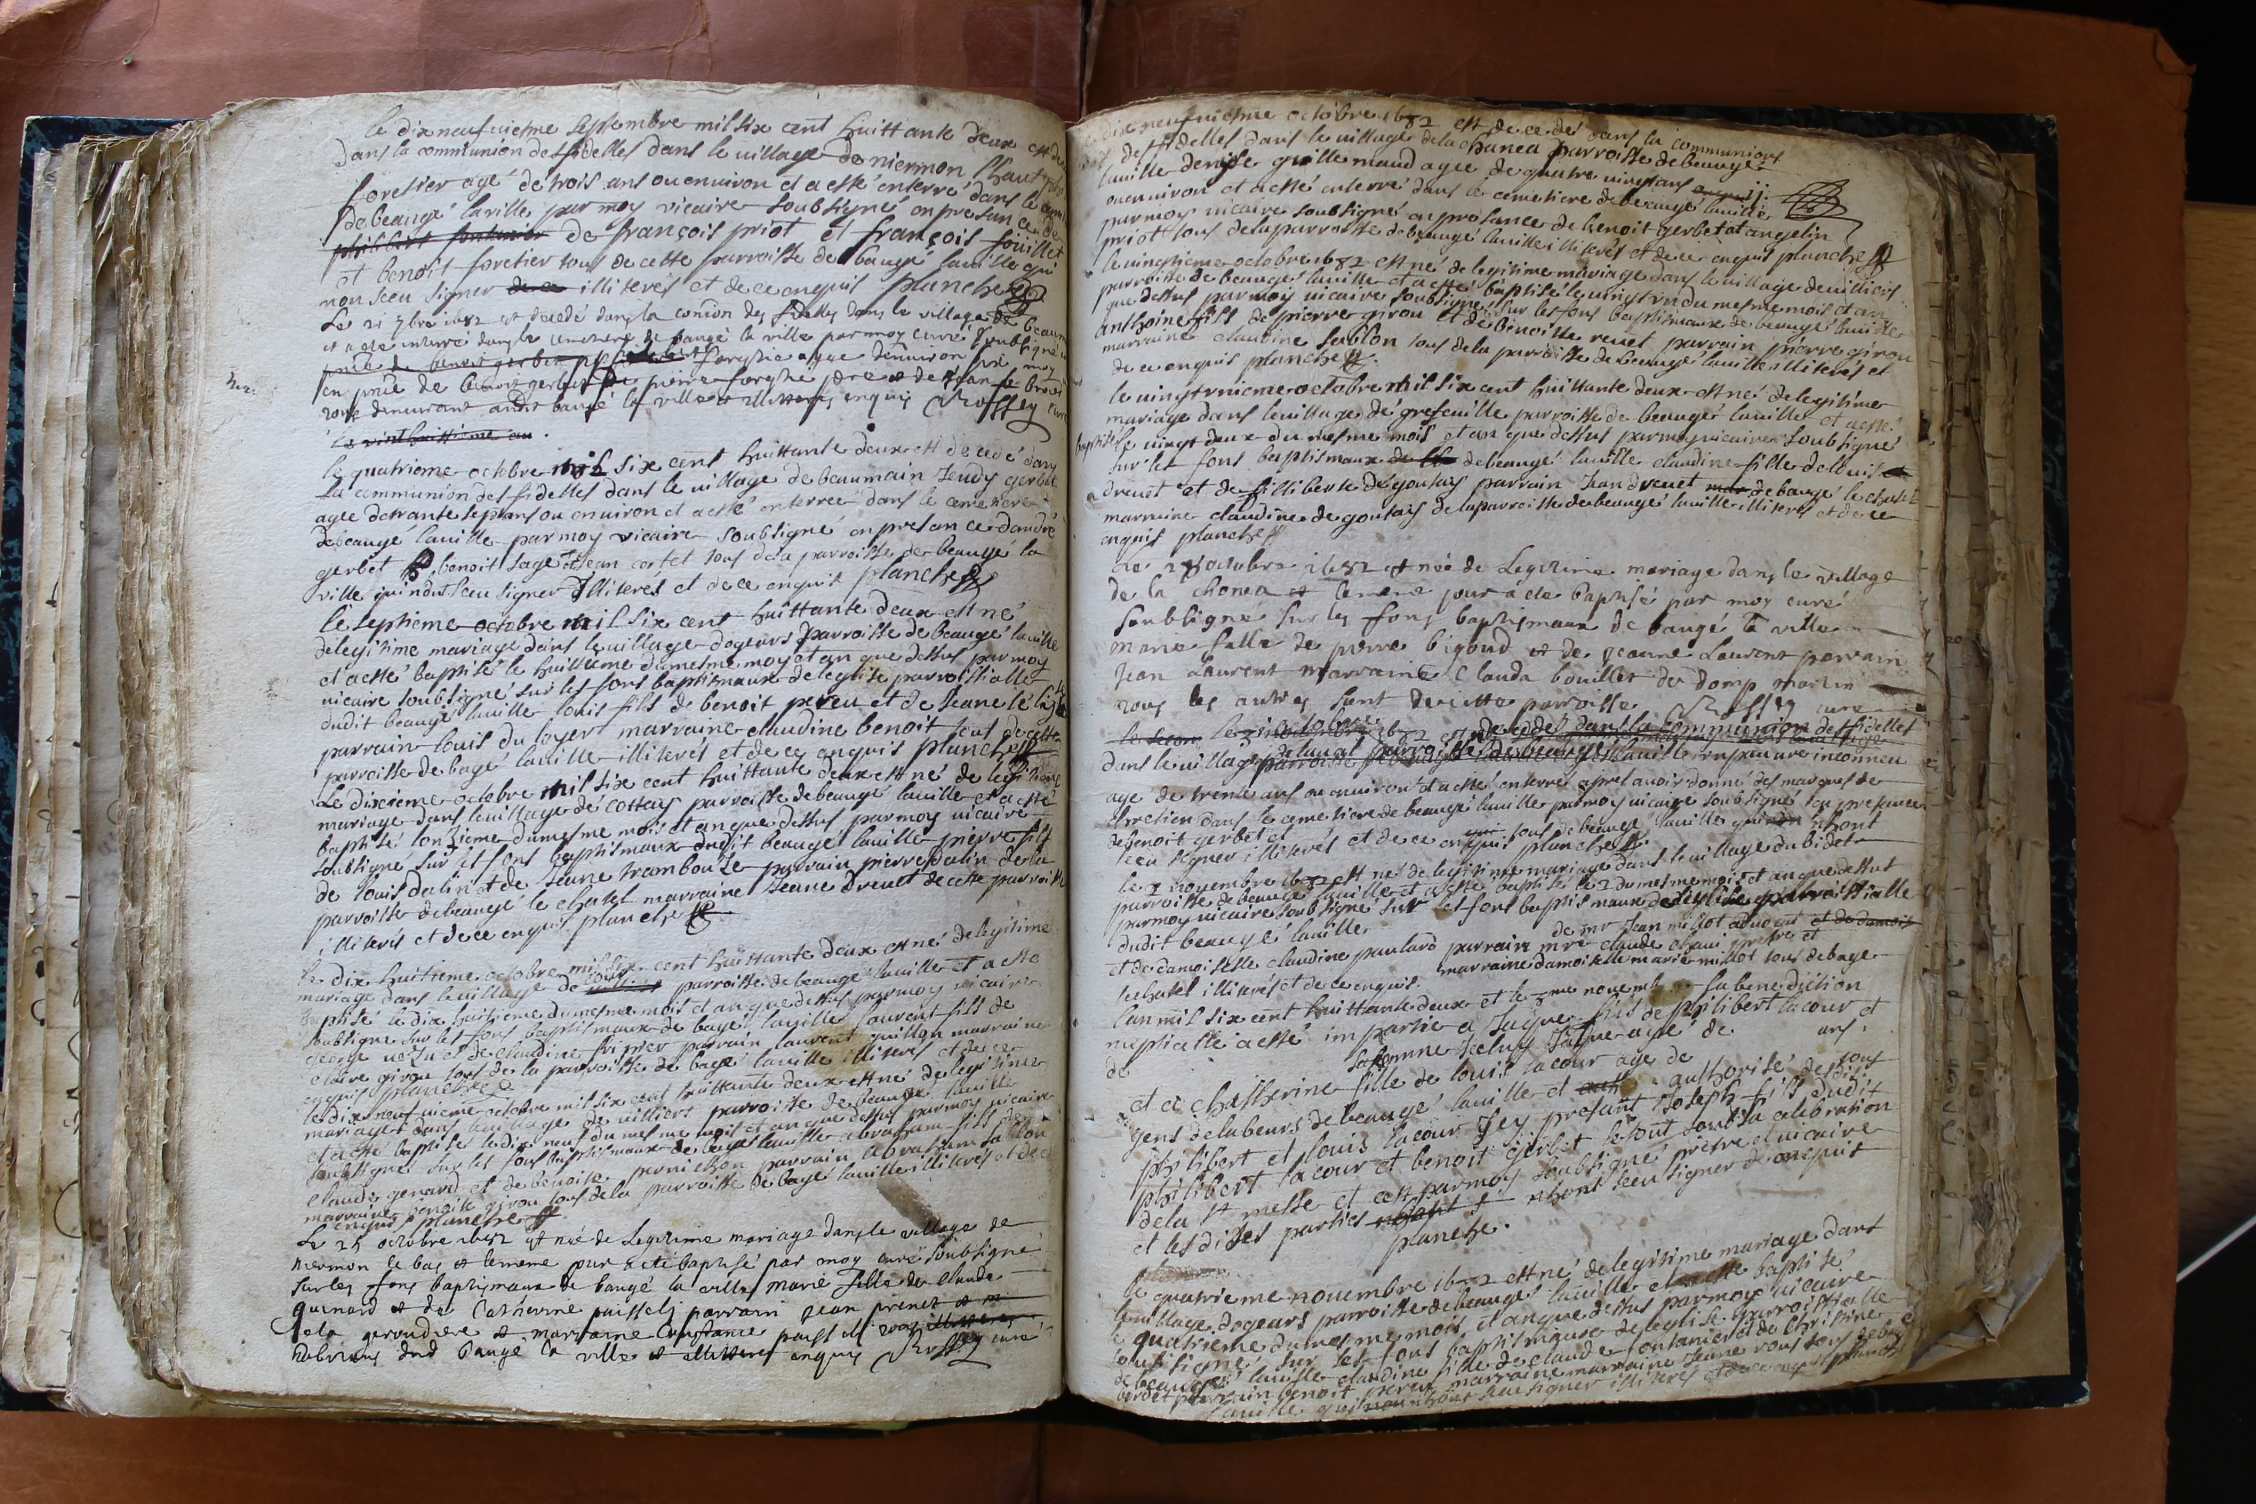 le dix neufviesme septembre mil six cent huittante deux est de
dans la communion des fidelles dans le village de niermon lhaut
forestier agé de trois ans ou environ et a esté enterré dans le
de beaugé laville par moy vicaire soubsigné en presance de
de françois priot et françois fouillet
et benoit foretier tous de cette parroisse de baugé laville qui
non sceu signer illiterés et de ce enquis planche
Le 21 7bre 1682 est decedé dans la comion des fidelles dans le village de
et a esté enterré dans le cemetiere de baugé la ville par moy curé soubsigné
en pnce de benoit gerbet de pierre forestie pere et de
tous demeurant audit baugé la ville et illitteres enquis Rossey
le vint huittieme au
le quatrieme octobre mil six cent huittante deux est decedé dans
la communion des fidelles dans le village de beaumain
agee de trante sept ans ou environ et a esté enterree dans le cemetiere
de beaugé laville par moy vicaire soubsigné en presance dandré
gerbet benoit sage et jean cortet tous de la parroisse de beaugé la
ville qui nont sceu signer illiterés et de ce enquis planche
le septieme octobre mil six cent huittante deux est né
de legitime mariage dans le village dogeurs parroisse de beaugé laville
et a esté baptisé le huittieme du mesme moy et an que dessus par moy
vicaire soubsigné sur les fons baptismaux de leglise parroissialle
dudit beaugé laville louis fils de benoit pereu et de jeane
parrain louis du loyert marraine claudine benoit tous de cette
parroisse de bagé laville illiterés et de ce enquis planche
Le dixieme octobre mil six cent huittante deux est né de legitime
mariage dans le village de cottais parroisse de beaugé laville et a esté
baptisé lonzieme du mesme mois et an que dessus par moy vicaire
soubsigné sur les fons baptismaux dudit beaugé laville pierre fils
de louis dalin et de jeane trambouze parrain pierre dalin de la
parroisse de beaugé le chatel marraine jeane drevet de cette parroisse
illiterés et de ce enquis planche
le dix huitieme octobre mil six cent huittante deux est né de legitime
mariage dans le village de parroisse de beaugé laville et a esté
baptisé le dix huitieme du mesme mois et an que dessus par moy vicaire
soubsigné sur les fons baptismaux de bagé laville laurent fils de
george et de claudine parrain laurent guillon marraine
claire girou tous de la parroisse de bagé laville illiterés et de ce
enquis planche
le dix neufvieme octobre mil six cent huittante deux est né de legitime
mariage dans le village de villiers parroisse de beaugé laville
et a esté baptisé le dix neuf du mesme mois et an que dessus par moy vicaire
soubsigné sur les fons baptismaux de beaugé laville abraham fils de
claude genard et de benoite parrain abraham sablon
marraine benoite girou tous de la parroisse de bagé laville illiterés et de ce
enquis planche
Le 25 octobre 1682 est née de legitime mariage dans le village de
niermon le bas et le meme jour a eté baptisé par moy curé soubsigné
sur les fons baptismaux de baugé la ville marie fille de claude
guenard et de Catherine parrain jean
de la et marraine Constance
dud baugé la ville et illitteres enquis Rossey curé
dixneufviesme octobre 1682 est decedé dans la communion
des fidelles dans le village de la chanea parroisse de beaugé
laville denise guillemaud agee de quatre vingt ans
ou environ et a esté enterré dans ce cemetiere de beaugé laville
par moy vicaire soubsigné en presance de benoit gerbet et angelin
priot tous de la parroisse de beaugé laville illiterés et de ce enquis planche
le vingtieme octobre 1682 est né de legitime mariage dans le village de villiers
parroisse de beaugé laville et a esté baptisé le vingt un du mesme mois et an
que dessus par moy vicaire soubsigné sur les fons baptismaux de beaugé laville
anthoine fils de pierre girou et de benoitte revet parrain pierre girou
marraine claudine sablon tous de la parroisse de beaugé laville illiterés et
de ce enquis planche
le vingt unieme octobre mil six cent huittante deux est né de legitime
mariage dans le village de grefeuille parroisse de beaugé laville et a esté
baptisé le vingt deux du mesme mois et an que dessus par moy vicaire soubsigné
sur les fons baptismaux de beaugé laville claudine fille de louis
drevet et de filliberte de goutais parrain jean drevet de baugé le chatel
marraine claudine de goutais de la parroisse de beaugé laville illiterés et de ce
enquis planche
Le 28 octobre 1682 est née de Legitime mariage dans le village
de la chanea et le meme jour a ete baptisé par moy curé
soubsigné sur les fons baptismaux de baugé la ville
marie fille de pierre bigoud et de jeanne Laurent parrain
jean Laurent marraine Clauda bouillet de Domp martin
tous les autres sont de cette parroisse Rossey curé
le 31 octobre 1682 est decedé dans la communion des fidelles
dans le village de laval parroisse de beaugé laville un pauvre inconneu
age de trente ans ou environ et a esté enterré apres avoir donné des marques de
chretien dans le cemetiere de beaugé laville par moy vicaire soubsigné en presance
de benoit gerbet et tous de beaugé laville qui nhont
sceu signer illiterés et de ce enquis planche
le novembre 1682 est né de legitime mariage dans le village du bidet
parroisse de beaugé laville et a esté baptisé le 2 du mesme mois et an que dessus
par moy vicaire soubsigné sur les fons baptismaux de leglise parroissialle
dudit beaugé laville de mr jean millot advocat
et de damoiselle claudine paulard parrain mre claude chavi pretre et
marraine damoiselle marie millot tous de bagé
le chatel illiterés et de ce enquis
lan mil six cent huittante deux et le novemb la benediction
nuptialle a esté impartie a jaque fils de philibert lacour et
de salomne jceluy jaque agé de ans
et a chatherine fille de louis lacour age de tous
gens de labeurs de beaugé laville et authorisé desdits
philibert et louis lacour jcy presant joseph fils dudit
philibert lacour et benoit gerbet le tout soub la celebration
de la st messe et cest par moy soubsigné pretre et vicaire
et les dites parties nhont sceu signer de ce enquis
planche
le quatrieme novembre 1682 est né de legitime mariage dans
le village dogeurs parroisse de beaugé laville et a esté baptisé
le quatrieme du mesme mois et an que dessus par moy vicaire
soubsigné sur les fons baptismaux de leglise parroissialle
de beaugé laville claudine fille de claude fontanier et de christine
parrain benoit pereu marraine jeane tous de
laville qui nont sceu signer illiterés et de ce enquis planche